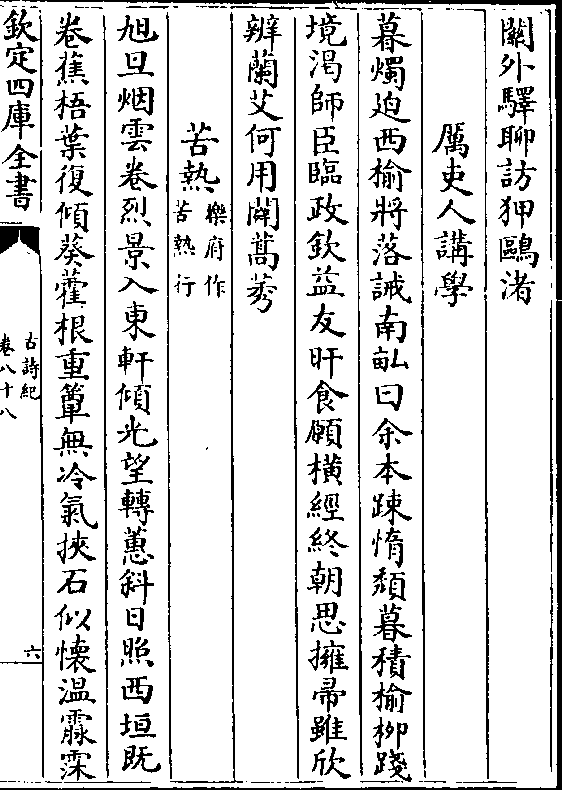 關外驛聊訪狎鷗渚
厲吏人講學
暮燭廹西榆將落誡南畝曰余本疎惰頽暮積榆栁踐
境渇師臣臨政欽益友旰食願横經終朝思擁帚雖欣
辨蘭艾何用闢蒿莠
苦熱樂府作苦熱行
旭旦烟雲卷烈景入東軒傾光望轉蕙斜日照西垣既
卷蕉梧葉復傾葵藿根重簟無冷氣挾石似懐温霢霂
欽定四庫全書
古詩紀
卷八十八
六